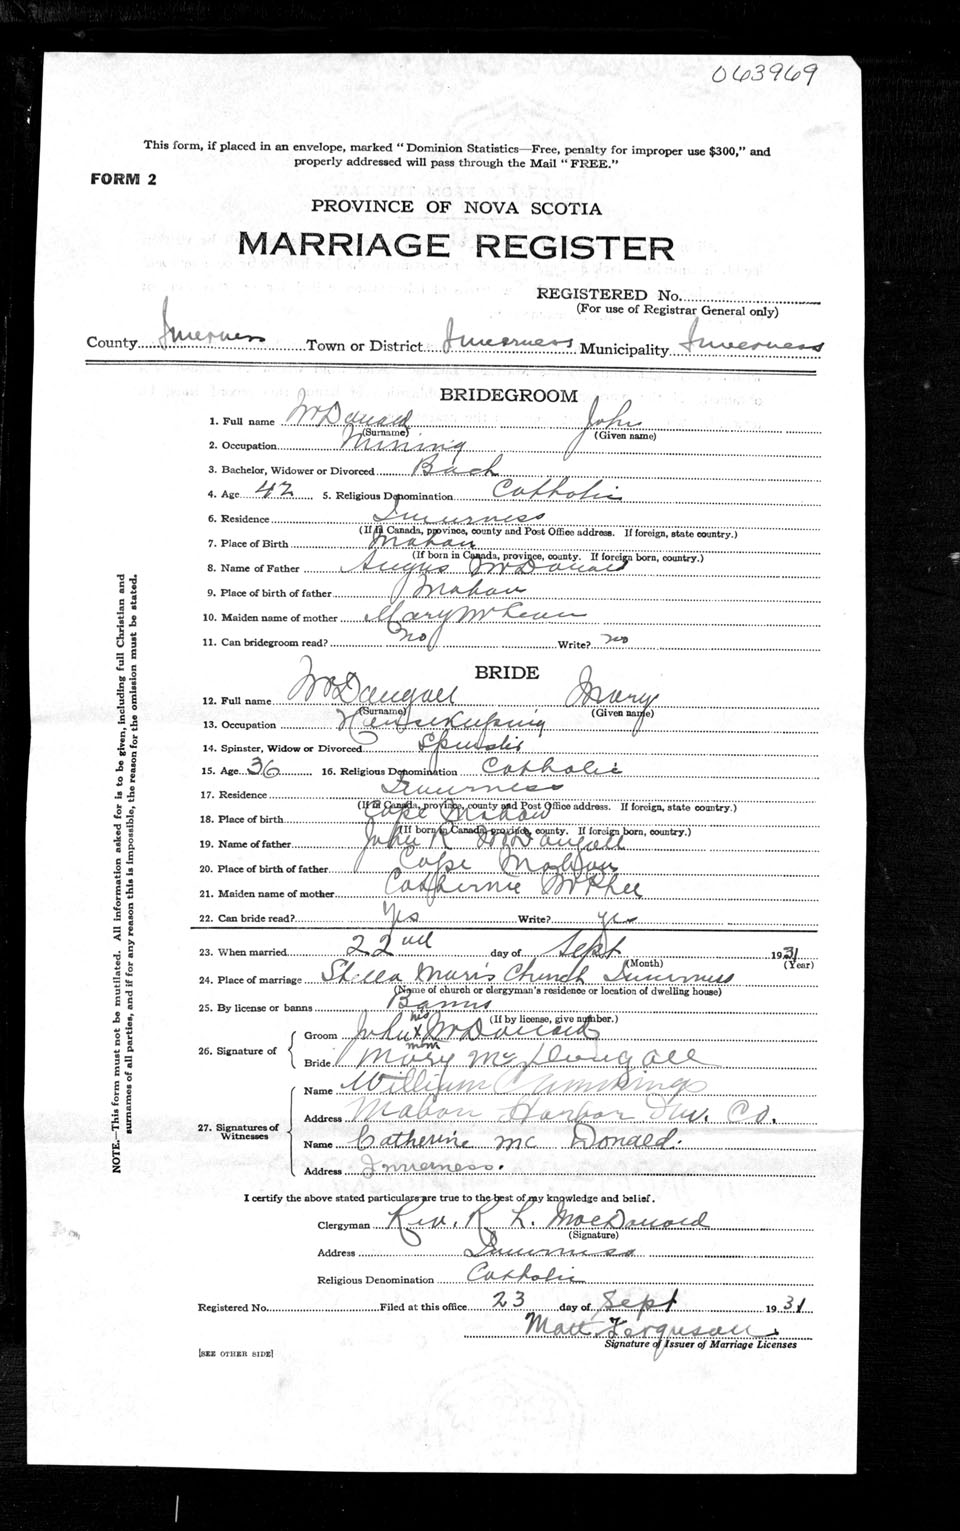 063969
This form, if placed in an envelope, marked "Dominion Statistics—Free, penalty for improper use $300," and
properly addressed will pass through the Mail "FREE."
FORM 2
PROVINCE OF NOVA SCOTIA
MARRIAGE REGISTER
REGISTERED No.
(For use of Registrar General only)
County Inverness Town or District Inverness Municipality Inverness
BRIDEGROOM
1. Full name McDonald John
(Surname) (Given name)
2. Occupation Mining
3. Bachelor, Widower or Divorced Bach
4. Age 42 5. Religious Denomination Catholic
6. Residence Inverness
(If in Canada, province, county and Post Office address. If foreign, state country.)
7. Place of Birth Mabou
(If born in Canada, province, county. If foreign born, country.)
8. Name of Father Angus McDonald
9. Place of birth of father Mabou
10. Maiden name of mother Mary McLean
11. Can bridegroom read? no Write? no
BRIDE
12. Full name McDougall Mary
(Surname) (Given name)
13. Occupation Housekeeping
14. Spinster, Widow or Divorced Spinster
15. Age 36 16. Religious Denomination Catholic
17. Residence Inverness
(If in Canada, province, county and Post Office address. If foreign, state country.)
18. Place of birth Cape Mabou
(If born in Canada, province, county. If foreign born, country.)
19. Name of father John R McDougall
20. Place of birth of father Cape Mabou
21. Maiden name of mother Catherine McPhee
22. Can bride read? Yes Write? yes
23. When married 22nd day of Sept 1931
(Month) (Year)
24. Place of marriage Stella Maris Church Inverness
(Name of church or clergyman's residence or location of dwelling house)
25. By license or banns Banns
(If by license, give number.)
26. Signature of
Groom John his X mark McDonald
Bride Mary McDougall
27. Signatures of Witnesses
Name William Cummings
Address Mabou Harbor Inv. Co.
Name Catherine Mc Donald.
Address Inverness.
I certify the above stated particulars are true to the best of my knowledge and belief.
Clergyman Rev. R. L. MacDonald
(Signature)
Address Inverness
Religious Denomination Catholic
Registered No. Filed at this office 23 day of Sept 1931
Matt Ferguson
Signature of Issuer of Marriage Licenses
[SEE OTHER SIDE]
NOTE.—This form must not be mutilated. All Information asked for is to be given, including full Christian and
surnames of all parties, and if for any reason this is impossible, the reason for the omission must be stated.